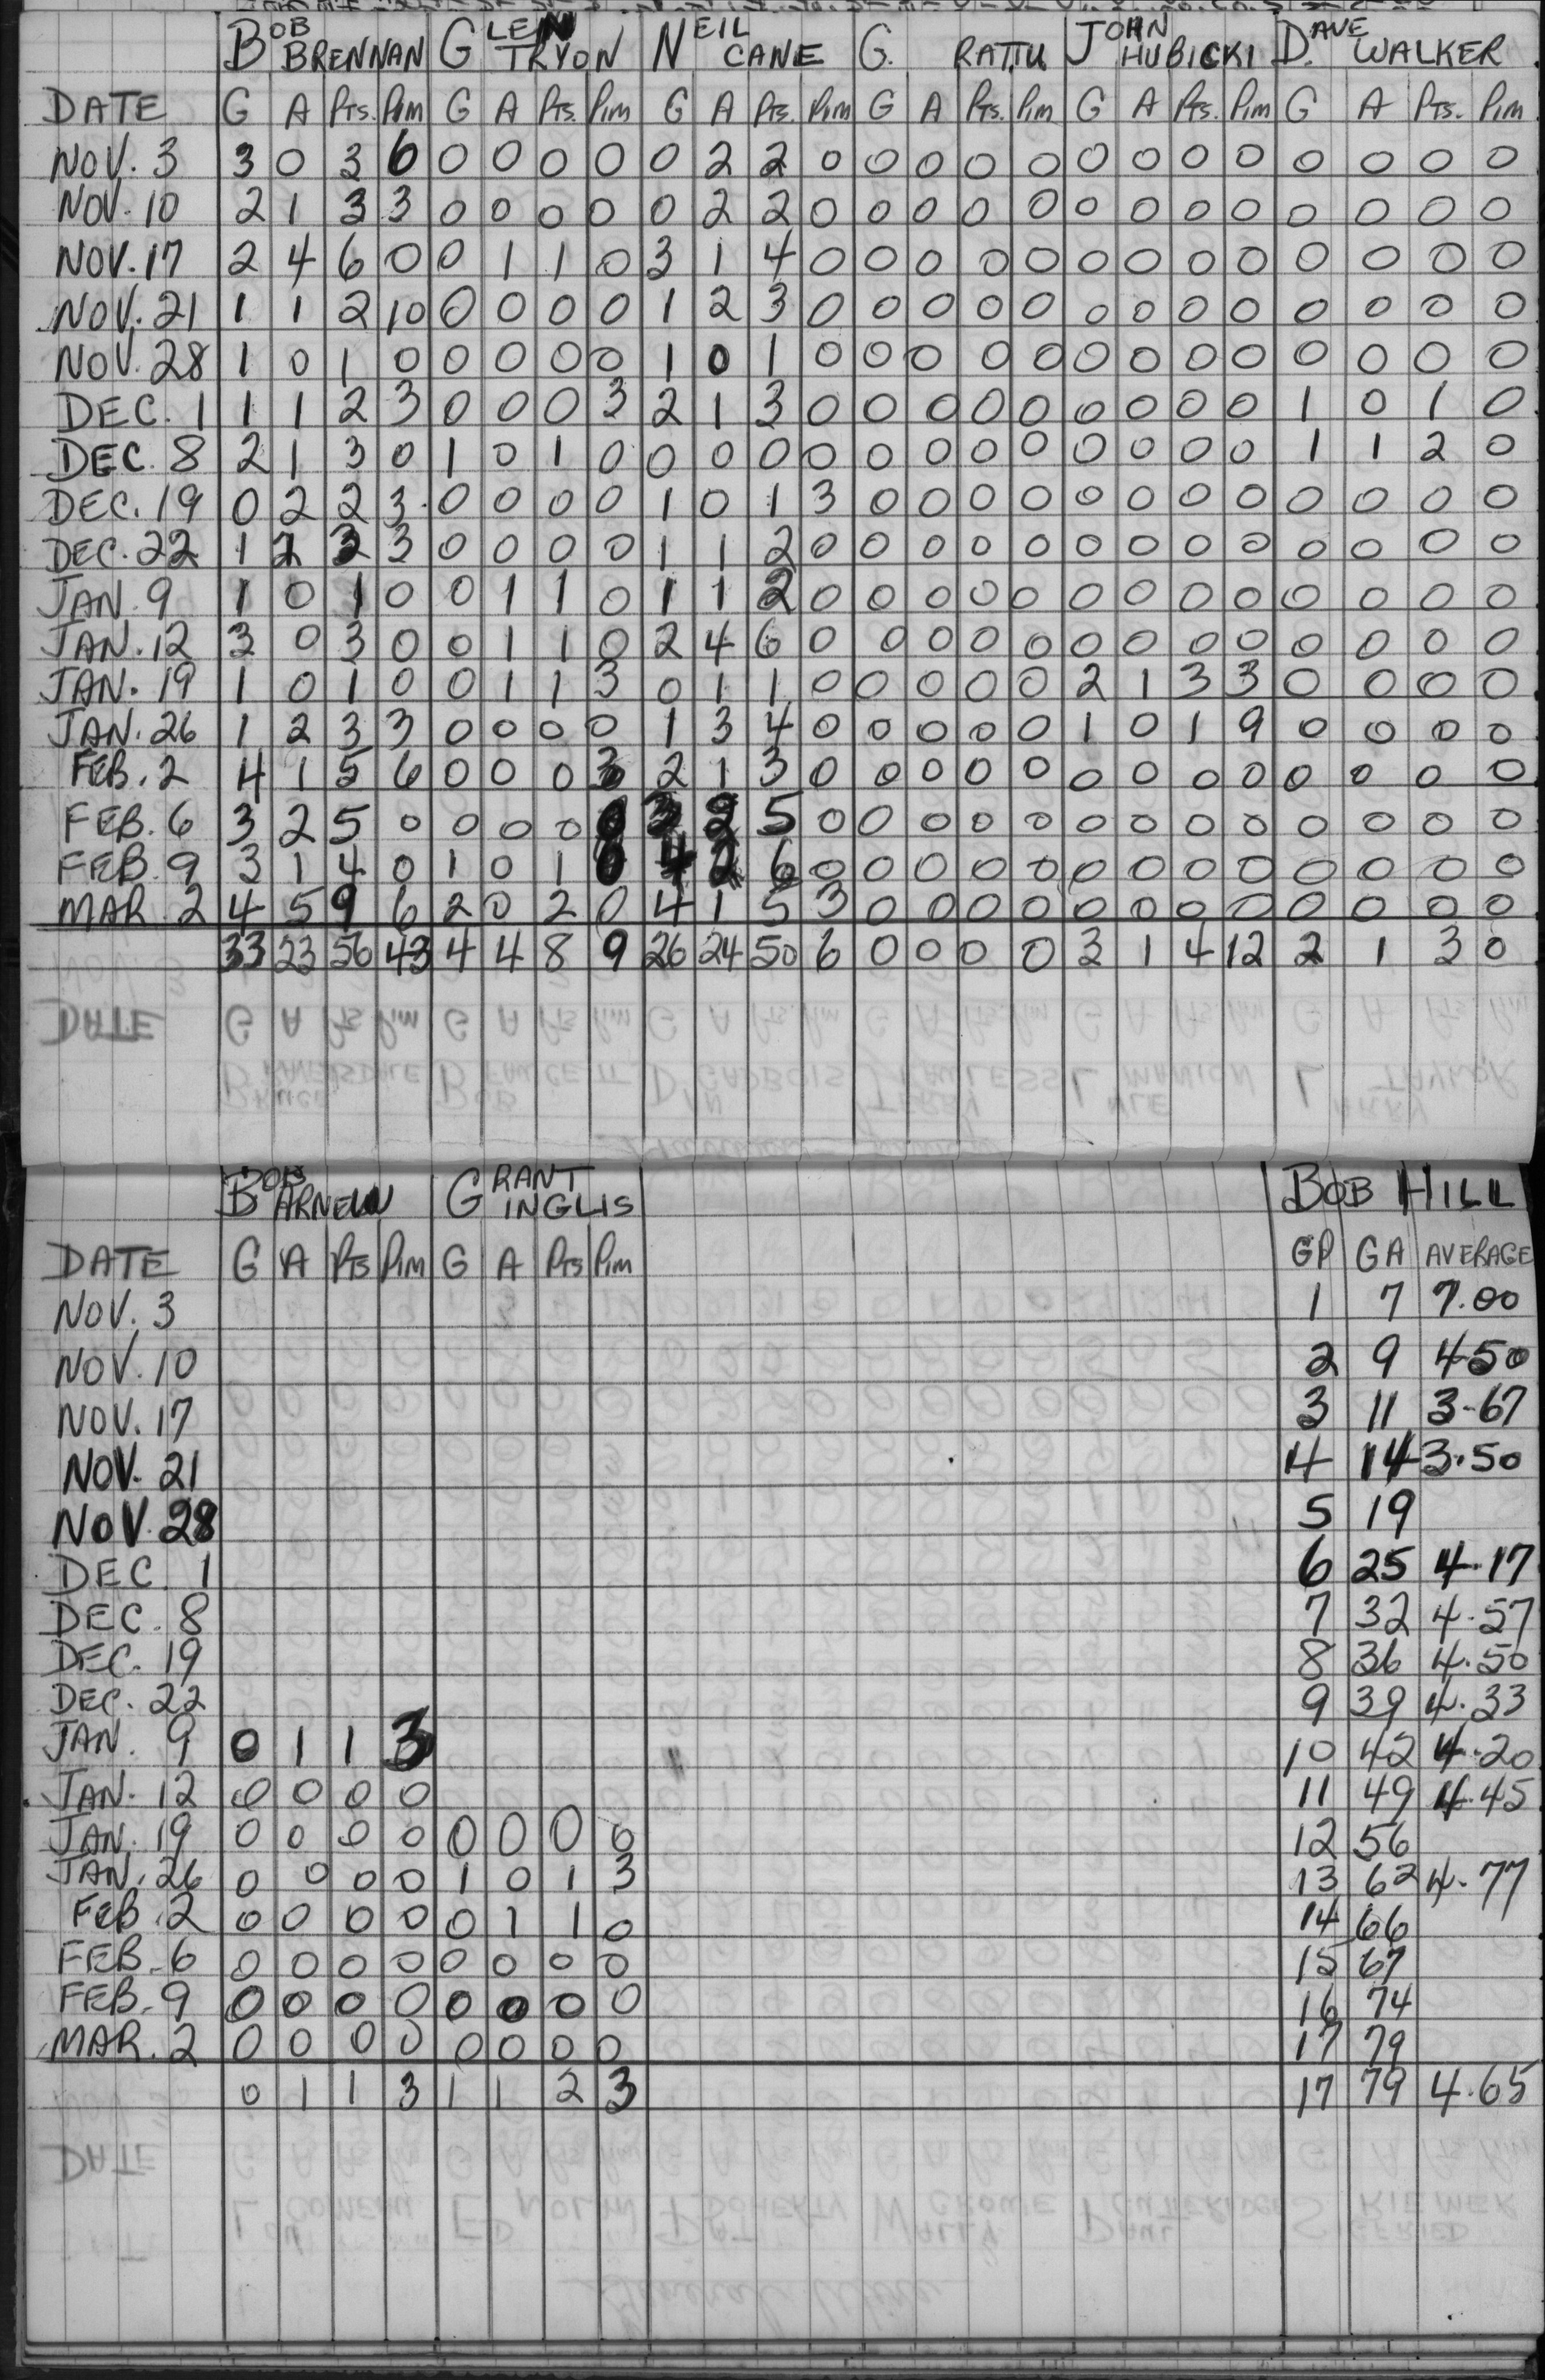 BOB BRENNAN GLENN TRYON NEIL CANE G. RATTU JOHN HUBICKI DAVE WALKER
DATE G A Pts. Pim G A Pts. Pim G A Pts. Pim G A Pts. Pim G A Pts. Pim G A Pts. Pim
NOV. 3 3 0 3 6 0 0 0 0 0 2 2 0 0 0 0 0 0 0 0 0 0 0 0 0
NOV. 10 2 1 3 3 0 0 0 0 0 2 2 0 0 0 0 0 0 0 0 0 0 0 0 0
NOV. 17 2 4 6 0 0 1 1 0 3 1 4 0 0 0 0 0 0 0 0 0 0 0 0 0
NOV. 21 1 1 2 10 0 0 0 0 1 2 3 0 0 0 0 0 0 0 0 0 0 0 0 0
NOV. 28 1 0 1 0 0 0 0 0 1 0 1 0 0 0 0 0 0 0 0 0 0 0 0 0
DEC. 1 1 1 2 3 0 0 0 3 2 1 3 0 0 0 0 0 0 0 0 0 1 0 1 0
DEC. 8 2 1 3 0 1 0 1 0 0 0 0 0 0 0 0 0 0 0 0 0 1 1 2 0
DEC. 19 0 2 2 3 0 0 0 0 1 0 1 3 0 0 0 0 0 0 0 0 0 0 0 0
DEC. 22 1 2 3 3 0 0 0 0 1 1 2 0 0 0 0 0 0 0 0 0 0 0 0 0
JAN. 9 1 0 1 0 0 1 1 0 1 1 2 0 0 0 0 0 0 0 0 0 0 0 0 0
JAN. 12 3 0 3 0 0 1 1 0 2 4 6 0 0 0 0 0 0 0 0 0 0 0 0 0
JAN. 19 1 0 1 0 0 1 1 3 0 1 1 0 0 0 0 0 2 1 3 3 0 0 0 0
JAN. 26 1 2 3 3 0 0 0 0 1 3 4 0 0 0 0 0 1 0 1 9 0 0 0 0
FEB. 2 4 1 5 6 0 0 0 3 2 1 3 0 0 0 0 0 0 0 0 0 0 0 0 0
FEB. 6 3 2 5 0 0 0 0 0 3 2 5 0 0 0 0 0 0 0 0 0 0 0 0 0
FEB. 9 3 1 4 0 1 0 1 0 4 2 6 0 0 0 0 0 0 0 0 0 0 0 0 0
MAR. 2 4 5 9 6 2 0 2 0 4 1 5 3 0 0 0 0 0 0 0 0 0 0 0 0
33 23 56 43 4 4 8 9 26 24 50 6 0 0 0 0 3 1 4 12 2 1 3 0
BOB ARNEW GRANT INGLIS BOB HILL
DATE G A Pts Pim G A Pts Pim GP GA AVERAGE
NOV. 3 1 7 7.00
NOV. 10 2 9 4.50
NOV. 17 3 11 3.67
NOV. 21 4 14 3.50
NOV. 28 5 19
DEC. 1 6 25 4.17
DEC. 8 7 32 4.57
DEC. 19 8 36 4.50
DEC. 22 9 39 4.33
JAN. 9 0 1 1 3 10 42 4.20
JAN. 12 0 0 0 0 11 49 4.45
JAN. 19 0 0 0 0 0 0 0 0 12 56
JAN. 26 0 0 0 0 1 0 1 3 13 62 4.77
FEB. 2 0 0 0 0 0 1 1 0 14 66
FEB. 6 0 0 0 0 0 0 0 0 15 67
FEB. 9 0 0 0 0 0 0 0 0 16 74
MAR. 2 0 0 0 0 0 0 0 0 17 79
0 1 1 3 1 1 2 3 17 79 4.65